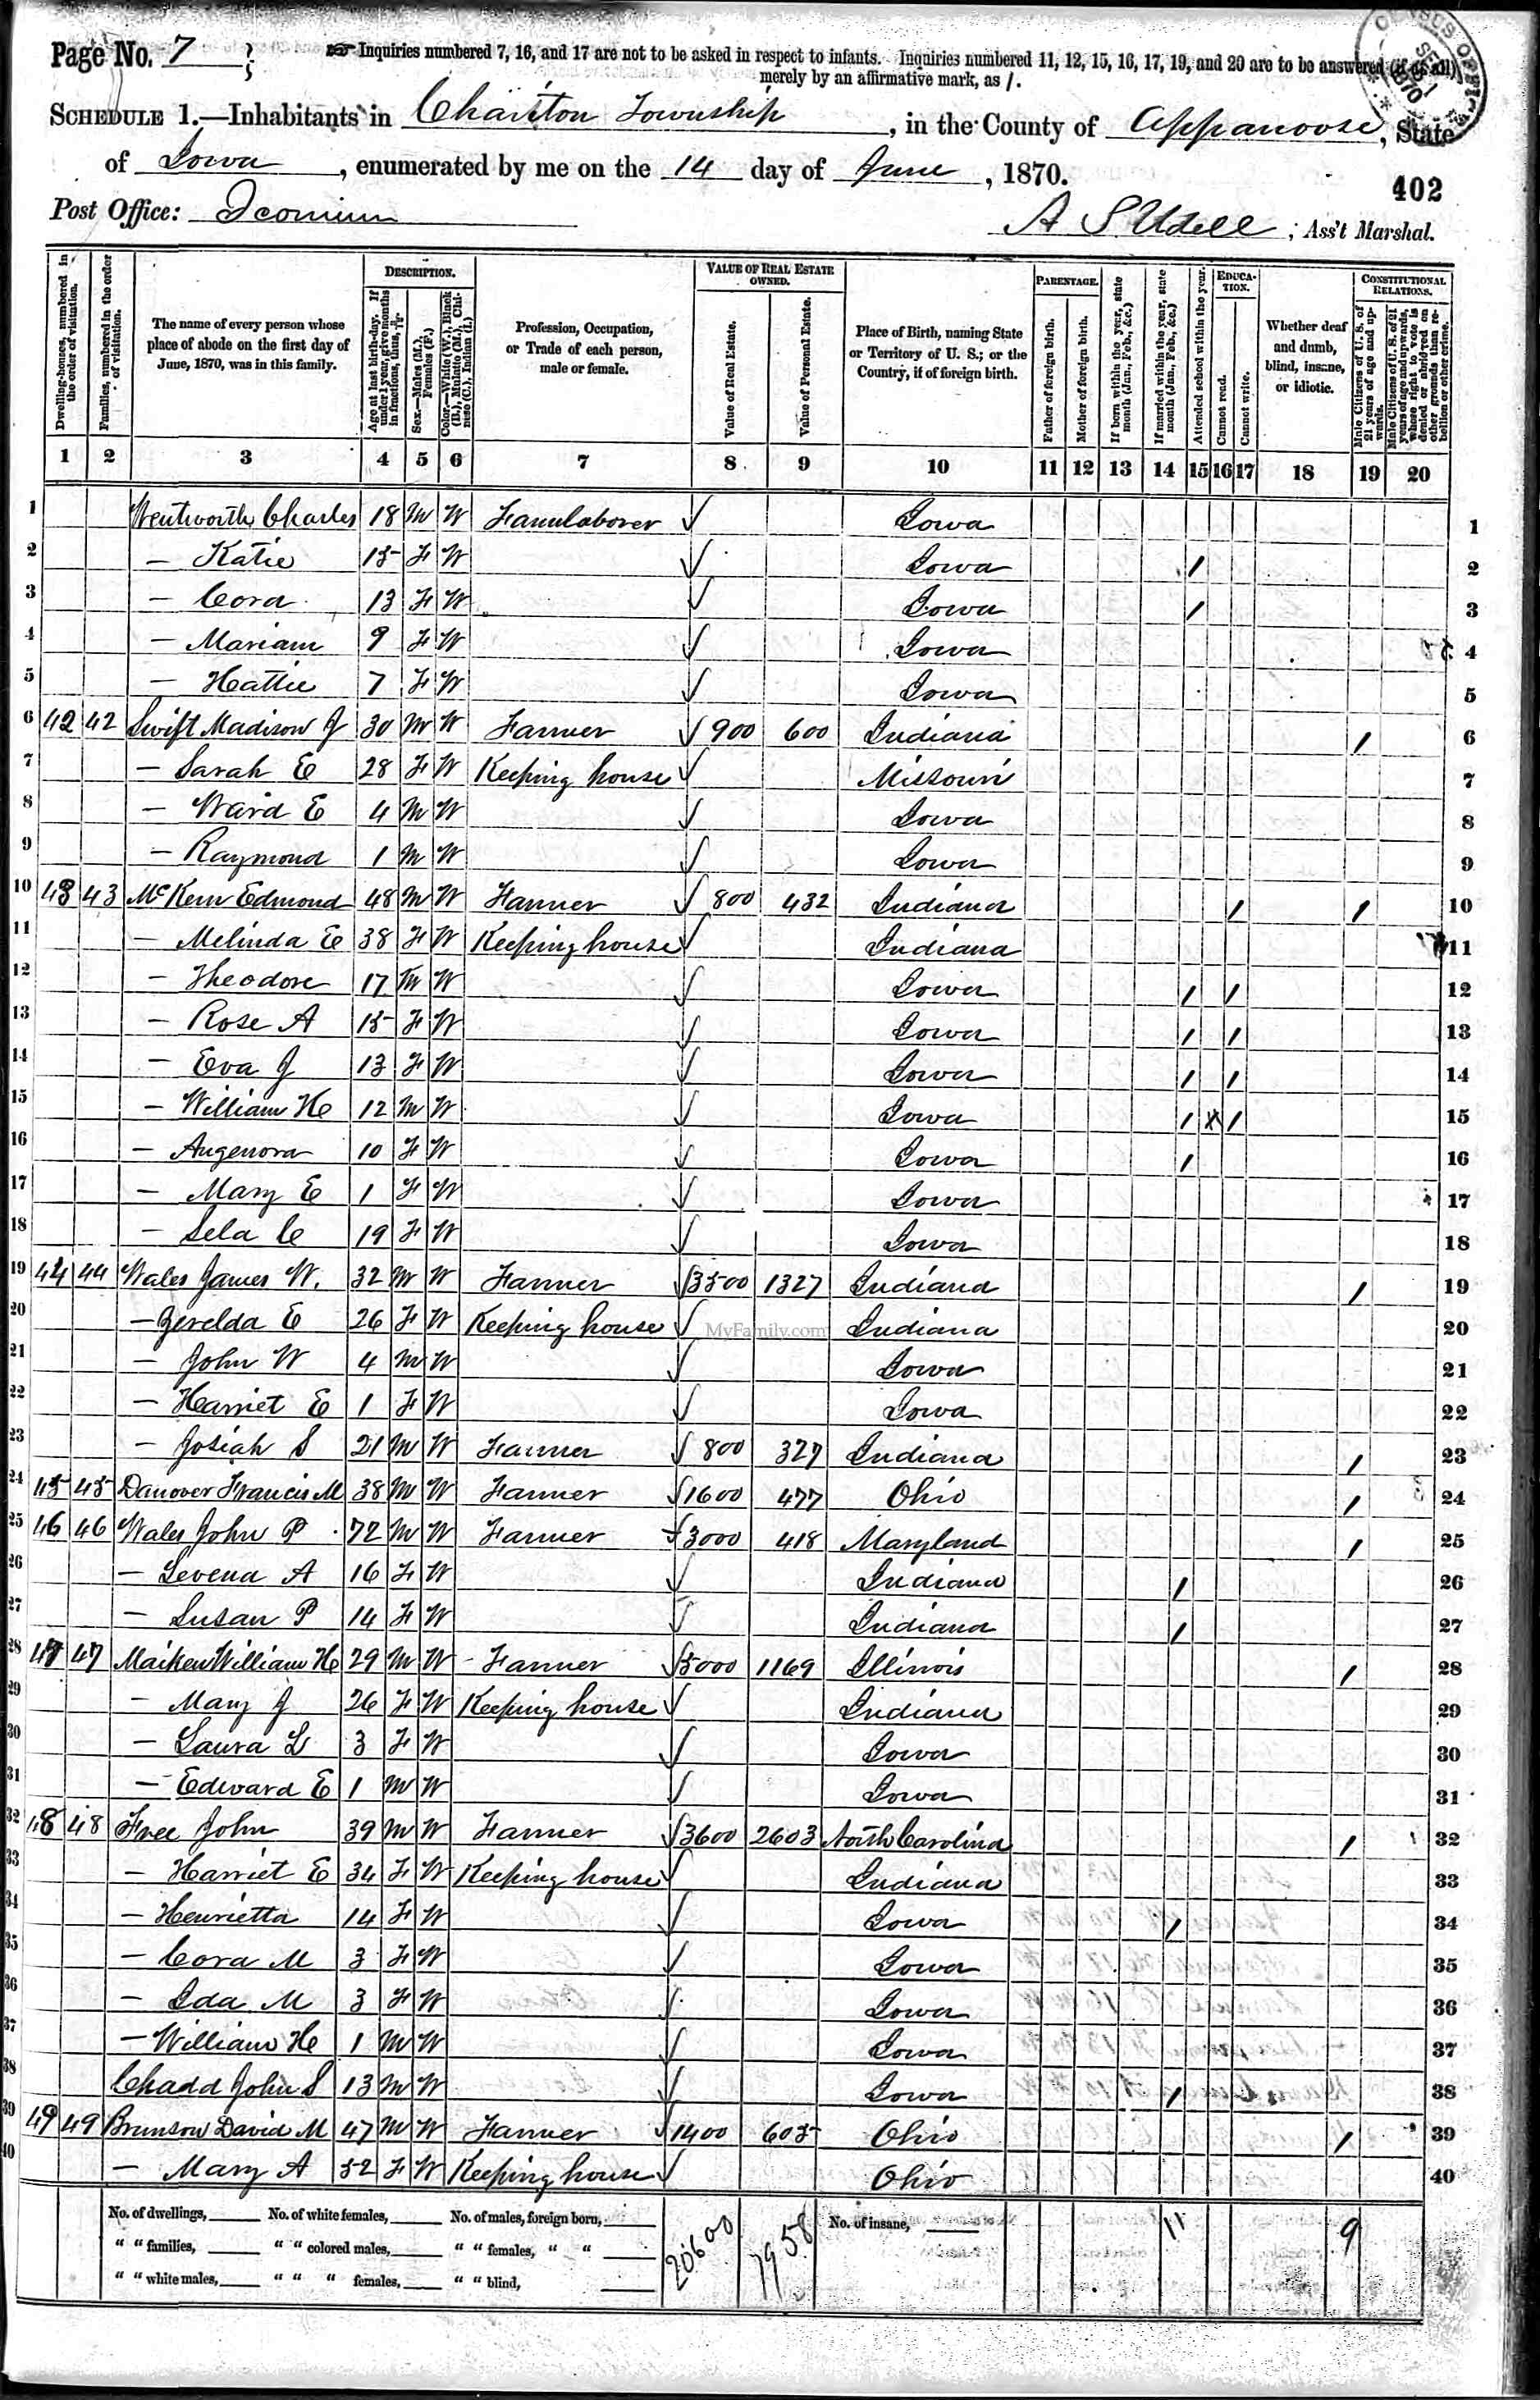 Page No. 7
☞ Inquiries numbered 7, 16, and 17 are not to be asked in respect to infants. Inquiries numbered 11, 12, 15, 16, 17, 19, and 20 are to be answered (if at all)
merely by an affirmative mark, as /.
SCHEDULE 1.—Inhabitants in Chariton Township, in the County of Appanoose, State
of Iowa, enumerated by me on the 14 day of June, 1870.
402
Post Office: Iconium
A S Udell, Ass't Marshal.
Dwelling-houses, numbered in the order of visitation.
Families, numbered in the order of visitation.
The name of every person whose place of abode on the first day of June, 1870, was in this family.
DESCRIPTION.
Age at last birth-day. If under 1 year, give months in fractions, thus,
Sex.—Males (M.), Females (F.)
Color.—White (W.), Black (B.), Mulatto (M.), Chinese (C.), Indian (I.)
Profession, Occupation, or Trade of each person, male or female.
VALUE OF REAL ESTATE OWNED.
Value of Real Estate.
Value of Personal Estate.
Place of Birth, naming State or Territory of U. S.; or the Country, if of foreign birth.
PARENTAGE.
Father of foreign birth.
Mother of foreign birth.
If born within the year, state month (Jan., Feb., &c.)
If married within the year, state month (Jan., Feb., &c.)
Attended school within the year.
EDUCATION.
Cannot read.
Cannot write.
Whether deaf and dumb, blind, insane, or idiotic.
CONSTITUTIONAL RELATIONS.
Male Citizens of U. S. of 21 years of age and upwards.
Male Citizens of U. S. of 21 years of age and upwards, whose right to vote is denied or abridged on other grounds than rebellion or other crime.
1 2 3 4 5 6 7 8 9 10 11 12 13 14 15 16 17 18 19 20
1 Wentworth Charles 18 M W Farmlaborer √ Iowa 1
2 — Katie 15 F W √ Iowa / 2
3 — Cora 13 F W √ Iowa / 3
4 — Mariam 9 F W √ Iowa 4
5 — Hattie 7 F W √ Iowa 5
6 42 42 Swift Madison J 30 M W Farmer √ 900 600 Indiana / 6
7 — Sarah E 28 F W Keeping house √ Missouri 7
8 — Ward E 4 M W √ Iowa 8
9 — Raymond 1 M W √ Iowa 9
10 43 43 McKern Edmond 48 M W Farmer √ 800 432 Indiana / / 10
11 — Melinda E 38 F W Keeping house √ Indiana 11
12 — Theodore 17 M W √ Iowa / / 12
13 — Rose A 15 F W √ Iowa / / 13
14 — Eva J 13 F W √ Iowa / / 14
15 — William H 12 M W √ Iowa / X / 15
16 — Augenora 10 F W √ Iowa / 16
17 — Mary E 1 F W √ Iowa 17
18 — Sela C 19 F W √ Iowa 18
19 44 44 Wales James W. 32 M W Farmer √ 3500 1327 Indiana / 19
20 — Gerelda E 26 F W Keeping house √ MyFamily.com Indiana 20
21 — John W 4 M W √ Iowa 21
22 — Harriet E 1 F W √ Iowa 22
23 — Josiah S 21 M W Farmer √ 800 327 Indiana / 23
24 45 45 Danover Francis M 38 M W Farmer √ 1600 477 Ohio / 24
25 46 46 Wales John P 72 M W Farmer √ 3000 418 Maryland / 25
26 — Levena A 16 F W √ Indiana / 26
27 — Susan P 14 F W √ Indiana / 27
28 47 47 Maiken William H 29 M W Farmer √ 5000 1169 Illinois / 28
29 — Mary J 26 F W Keeping house √ Indiana 29
30 — Laura L 3 F W √ Iowa 30
31 — Edward E 1 M W √ Iowa 31
32 48 48 Free John 39 M W Farmer √ 3600 2603 North Carolina / 32
33 — Harriet E 34 F W Keeping house √ Indiana 33
34 — Henrietta 14 F W √ Iowa / 34
35 — Cora M 3 F W √ Iowa 35
36 — Ida M 3 F W √ Iowa 36
37 — William H 1 M W √ Iowa 37
38 Chadd John S 13 M W √ Iowa / 38
39 49 49 Brunson David M 47 M W Farmer √ 1400 605 Ohio / 39
40 — Mary A 52 F W Keeping house √ Ohio 40
No. of dwellings, No. of white females, No. of males, foreign born, 20600 7958 No. of insane, 11 9
" " families, " " colored males, " " females, " "
" " white males, " " " females, " " blind,